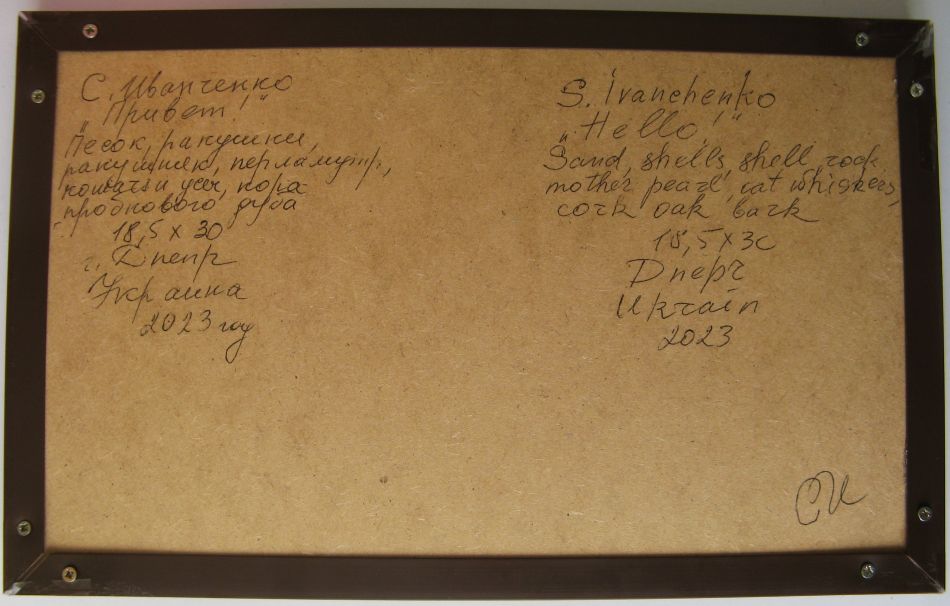 С. Иванченко
„Привет!"
Песок, ракушки,
ракушняк, перламутр,
кошачьи усы, кора
пробкового дуба
18,5 х 30
г. Днепр
Украина
2023 год
S. Ivanchenko
„Hello!"
Sand, shells, shell rock,
mother pearl, cat whiskers,
cork oak bark
18,5 x 30
Dnepr
Ukrain
2023
СИ